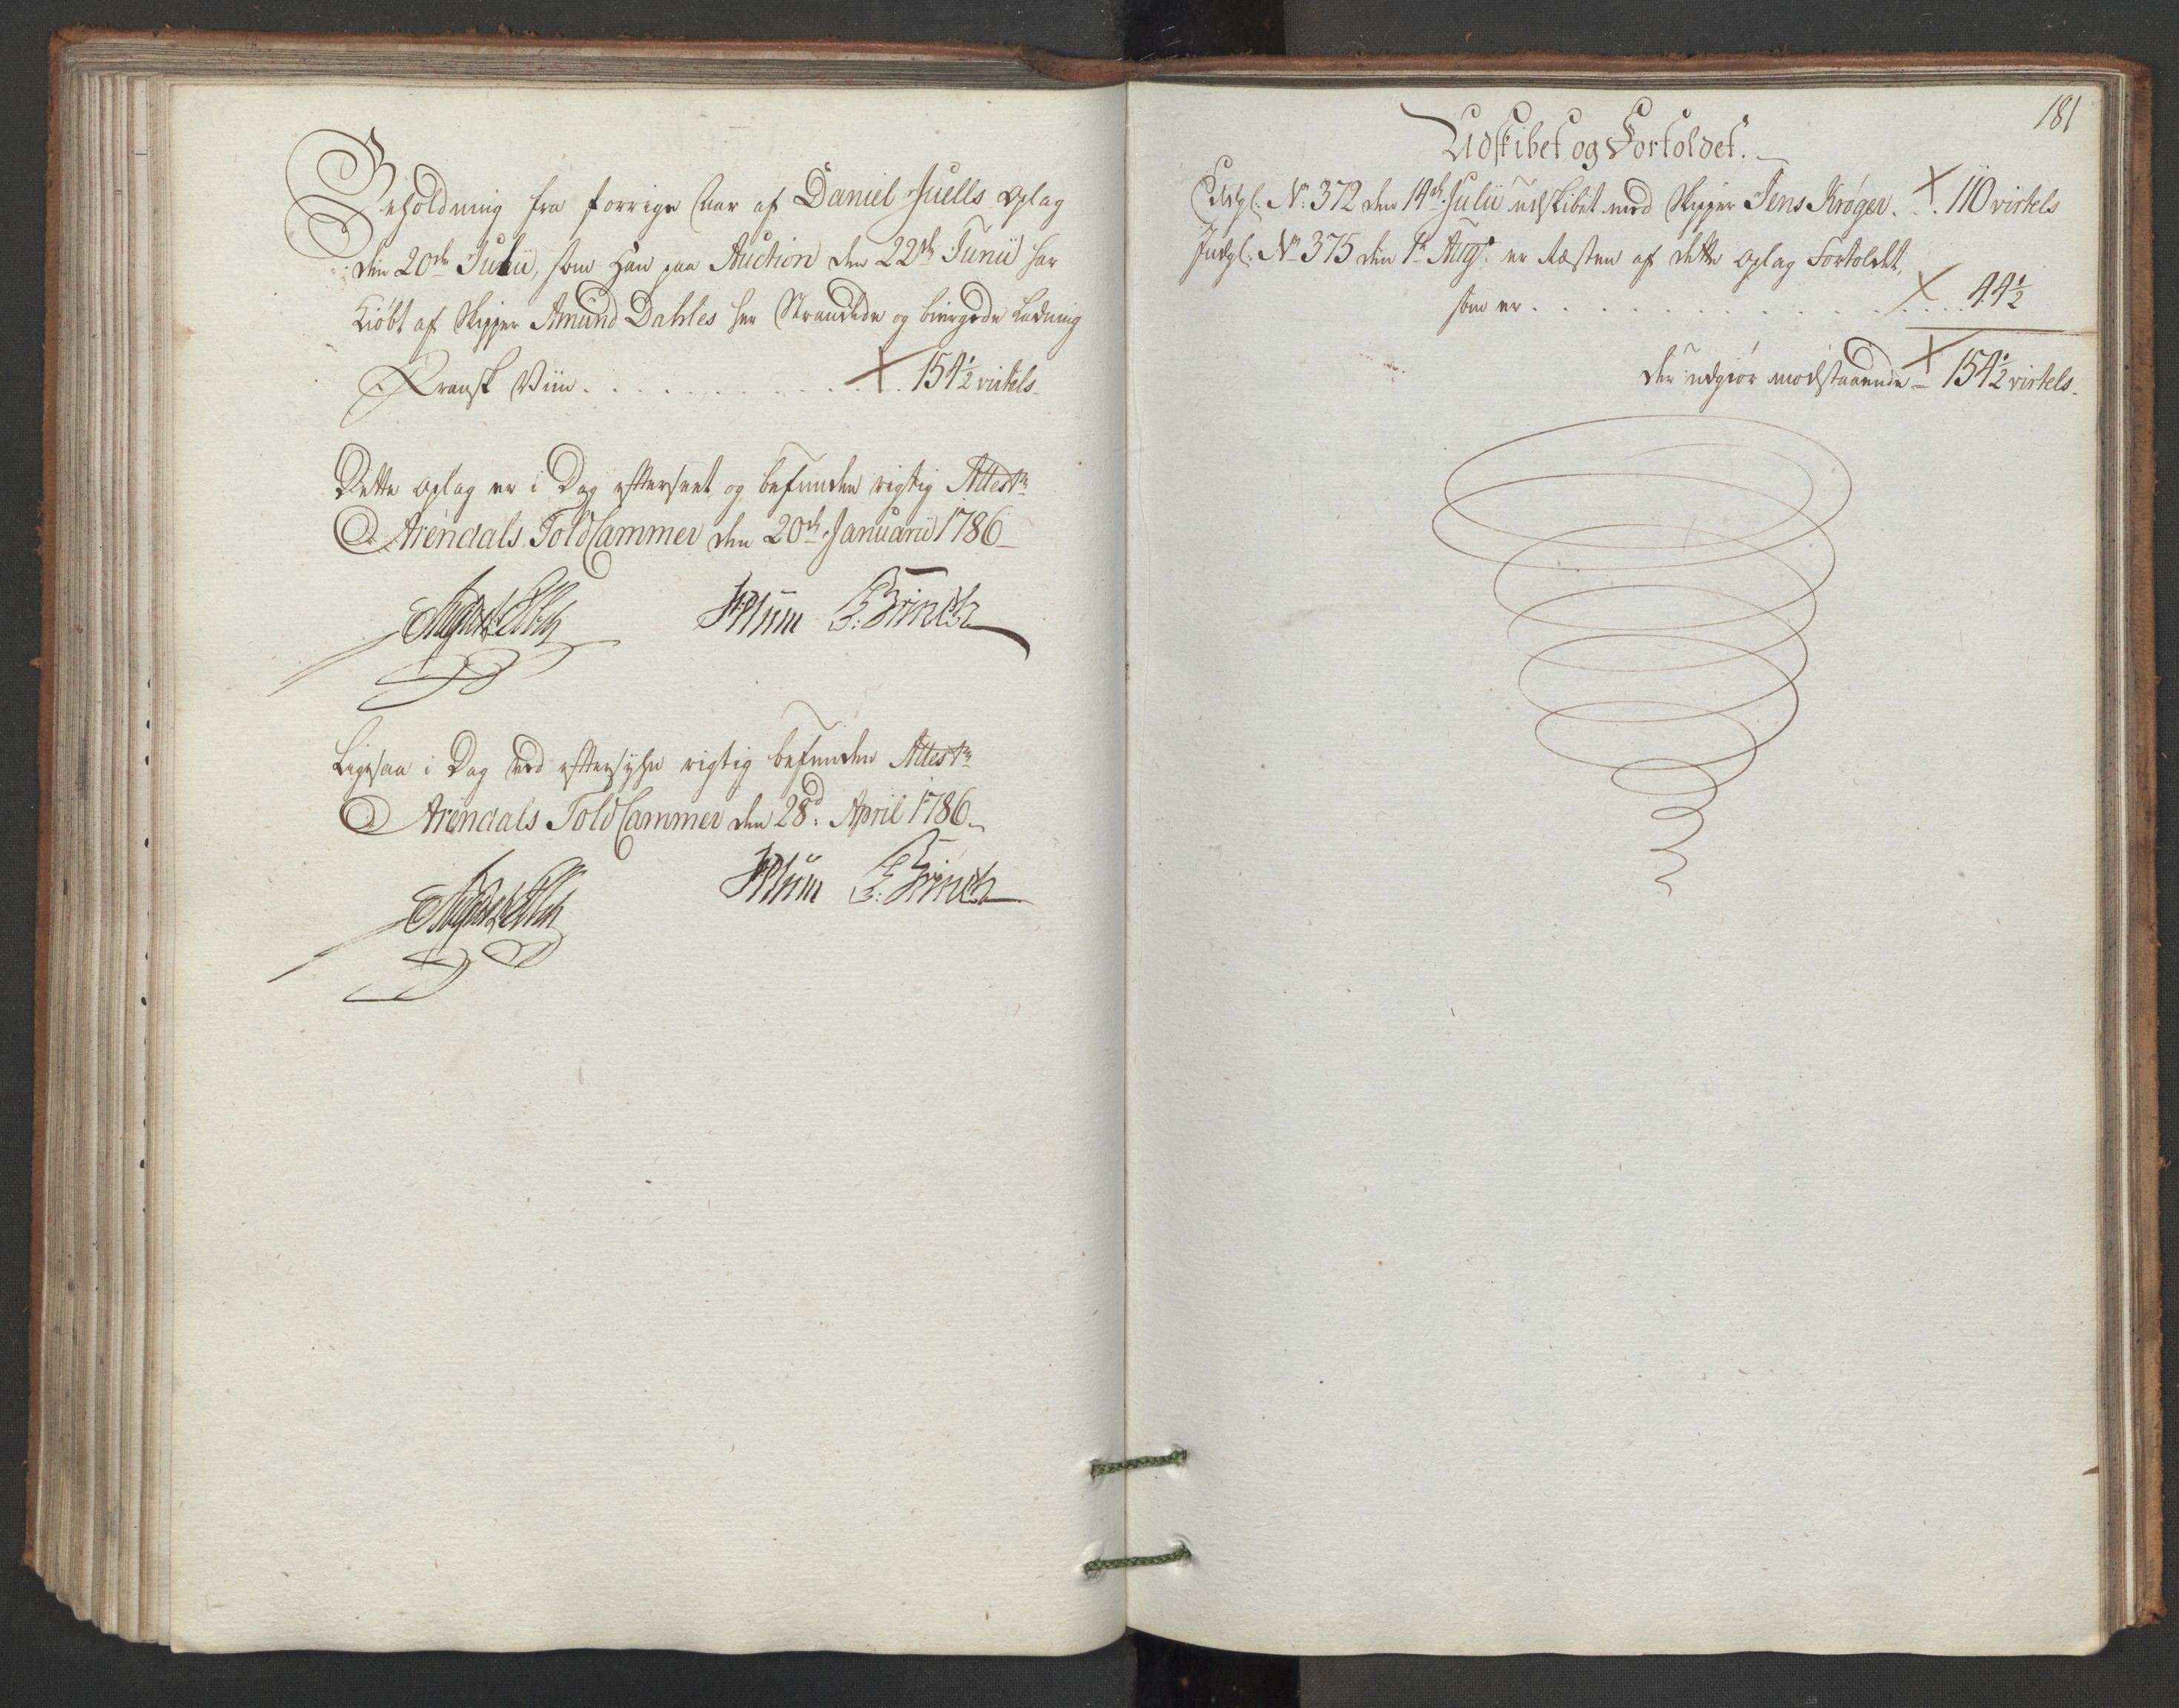 Beholdning fra forrige Aar af Daniel Juells Oplag
den 20de Julii, som Han paa Auction den 22de Junii har
Kiøbt af Skipper Amund Dahles her Strandede og biergede Ladning
Fransk Viin . . . . . . . . . . . 154½ virtels
Dette Oplag er i Dag efterseet og befunden rigtig Attestr
Arendals ToldCammer den 20de Januarii 1786
JPlum F: Brinch
Ligesaa i Dag ved eftersyhn rigtig befunden Attestr
Arendals ToldCammer den 28d. April 1786
JPlum F: Brinch
181
Udskibet og Fortoldet.
Udgl: No: 372 den 14de Julii udskibet med Skipper Jens Krøger . . 110 virtels
Indgl: No 375 den 1te Augs: er Resten af dette Oplag Fortoldet,
som er . . . . . . . . . . . . 44½
der udgiør modstaaende 154½ virtels